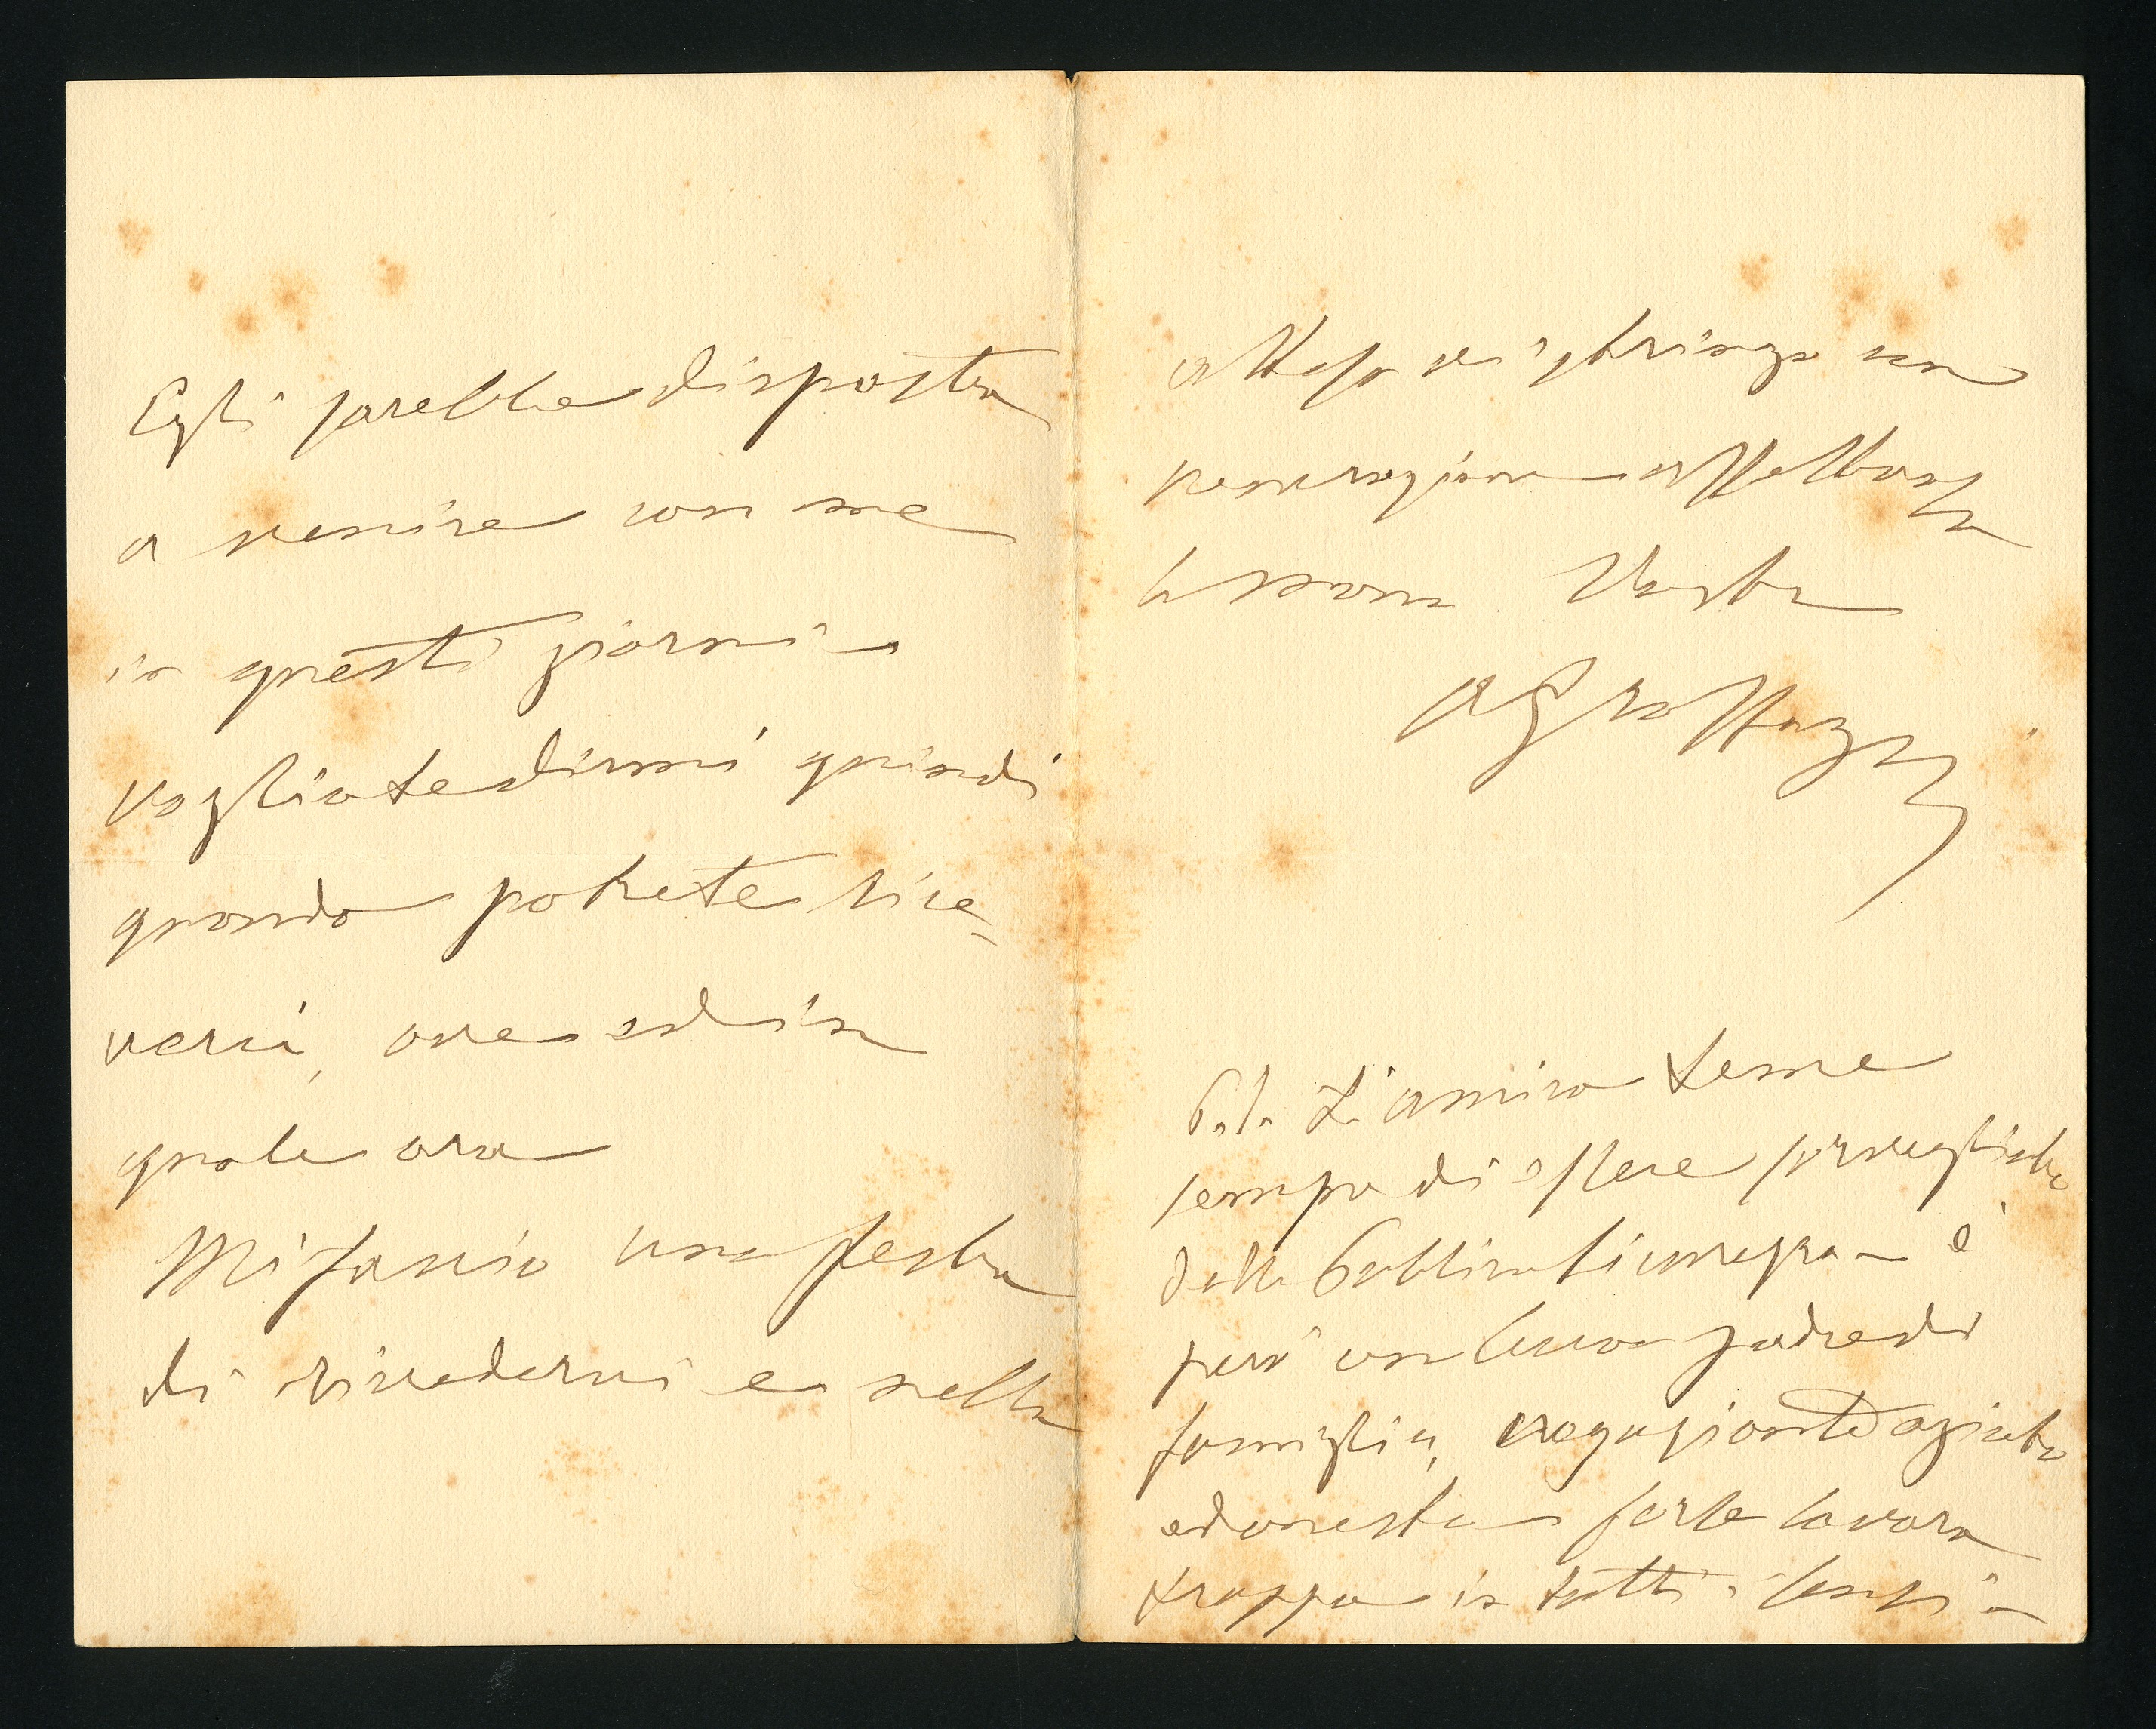 Egli sarebbe disposto
a venire con me
in questi giorni -
vogliate dirmi quindi
quando potrete rice-
verci, ove ed in
quale ora
Mi faccio una festa
di rivedervi e nella
attesa vi stringo con
venerazione affettuosa
la mano Vostro
P.S. L'amico teme
sempre di essere sorvegliato
dalla Pubblica Sicurezza - è
però un buon padre di
famiglia, negoziante agiato
ed onesto - forse lavora
troppo in tutti i sensi -